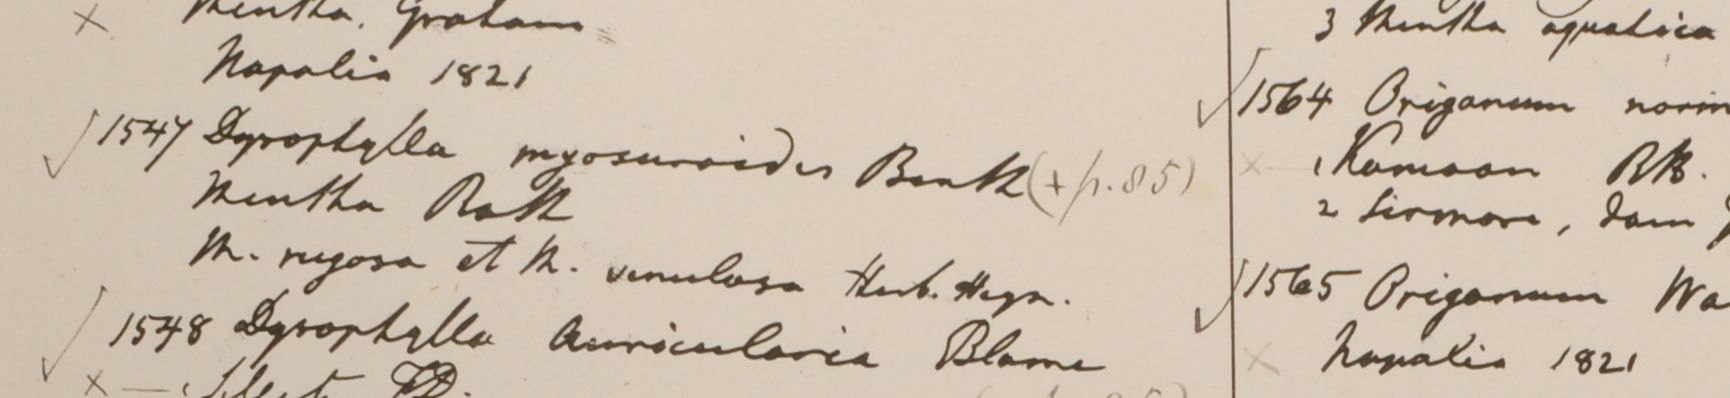 Mentha. Graham
Napalia 1821
1547 Dysophylla myosuroides Benth (+ p. 85)
Mentha Roth
M. rugosa et M. venulosa Herb. Heyn.
1548 Dysophylla Auricularia Blume
3 Mentha aquatica
1564 Origanum norm
1 Kamaon RB.
2 Sirmore, dam
1565 Origanum Wa
Napalia 1821